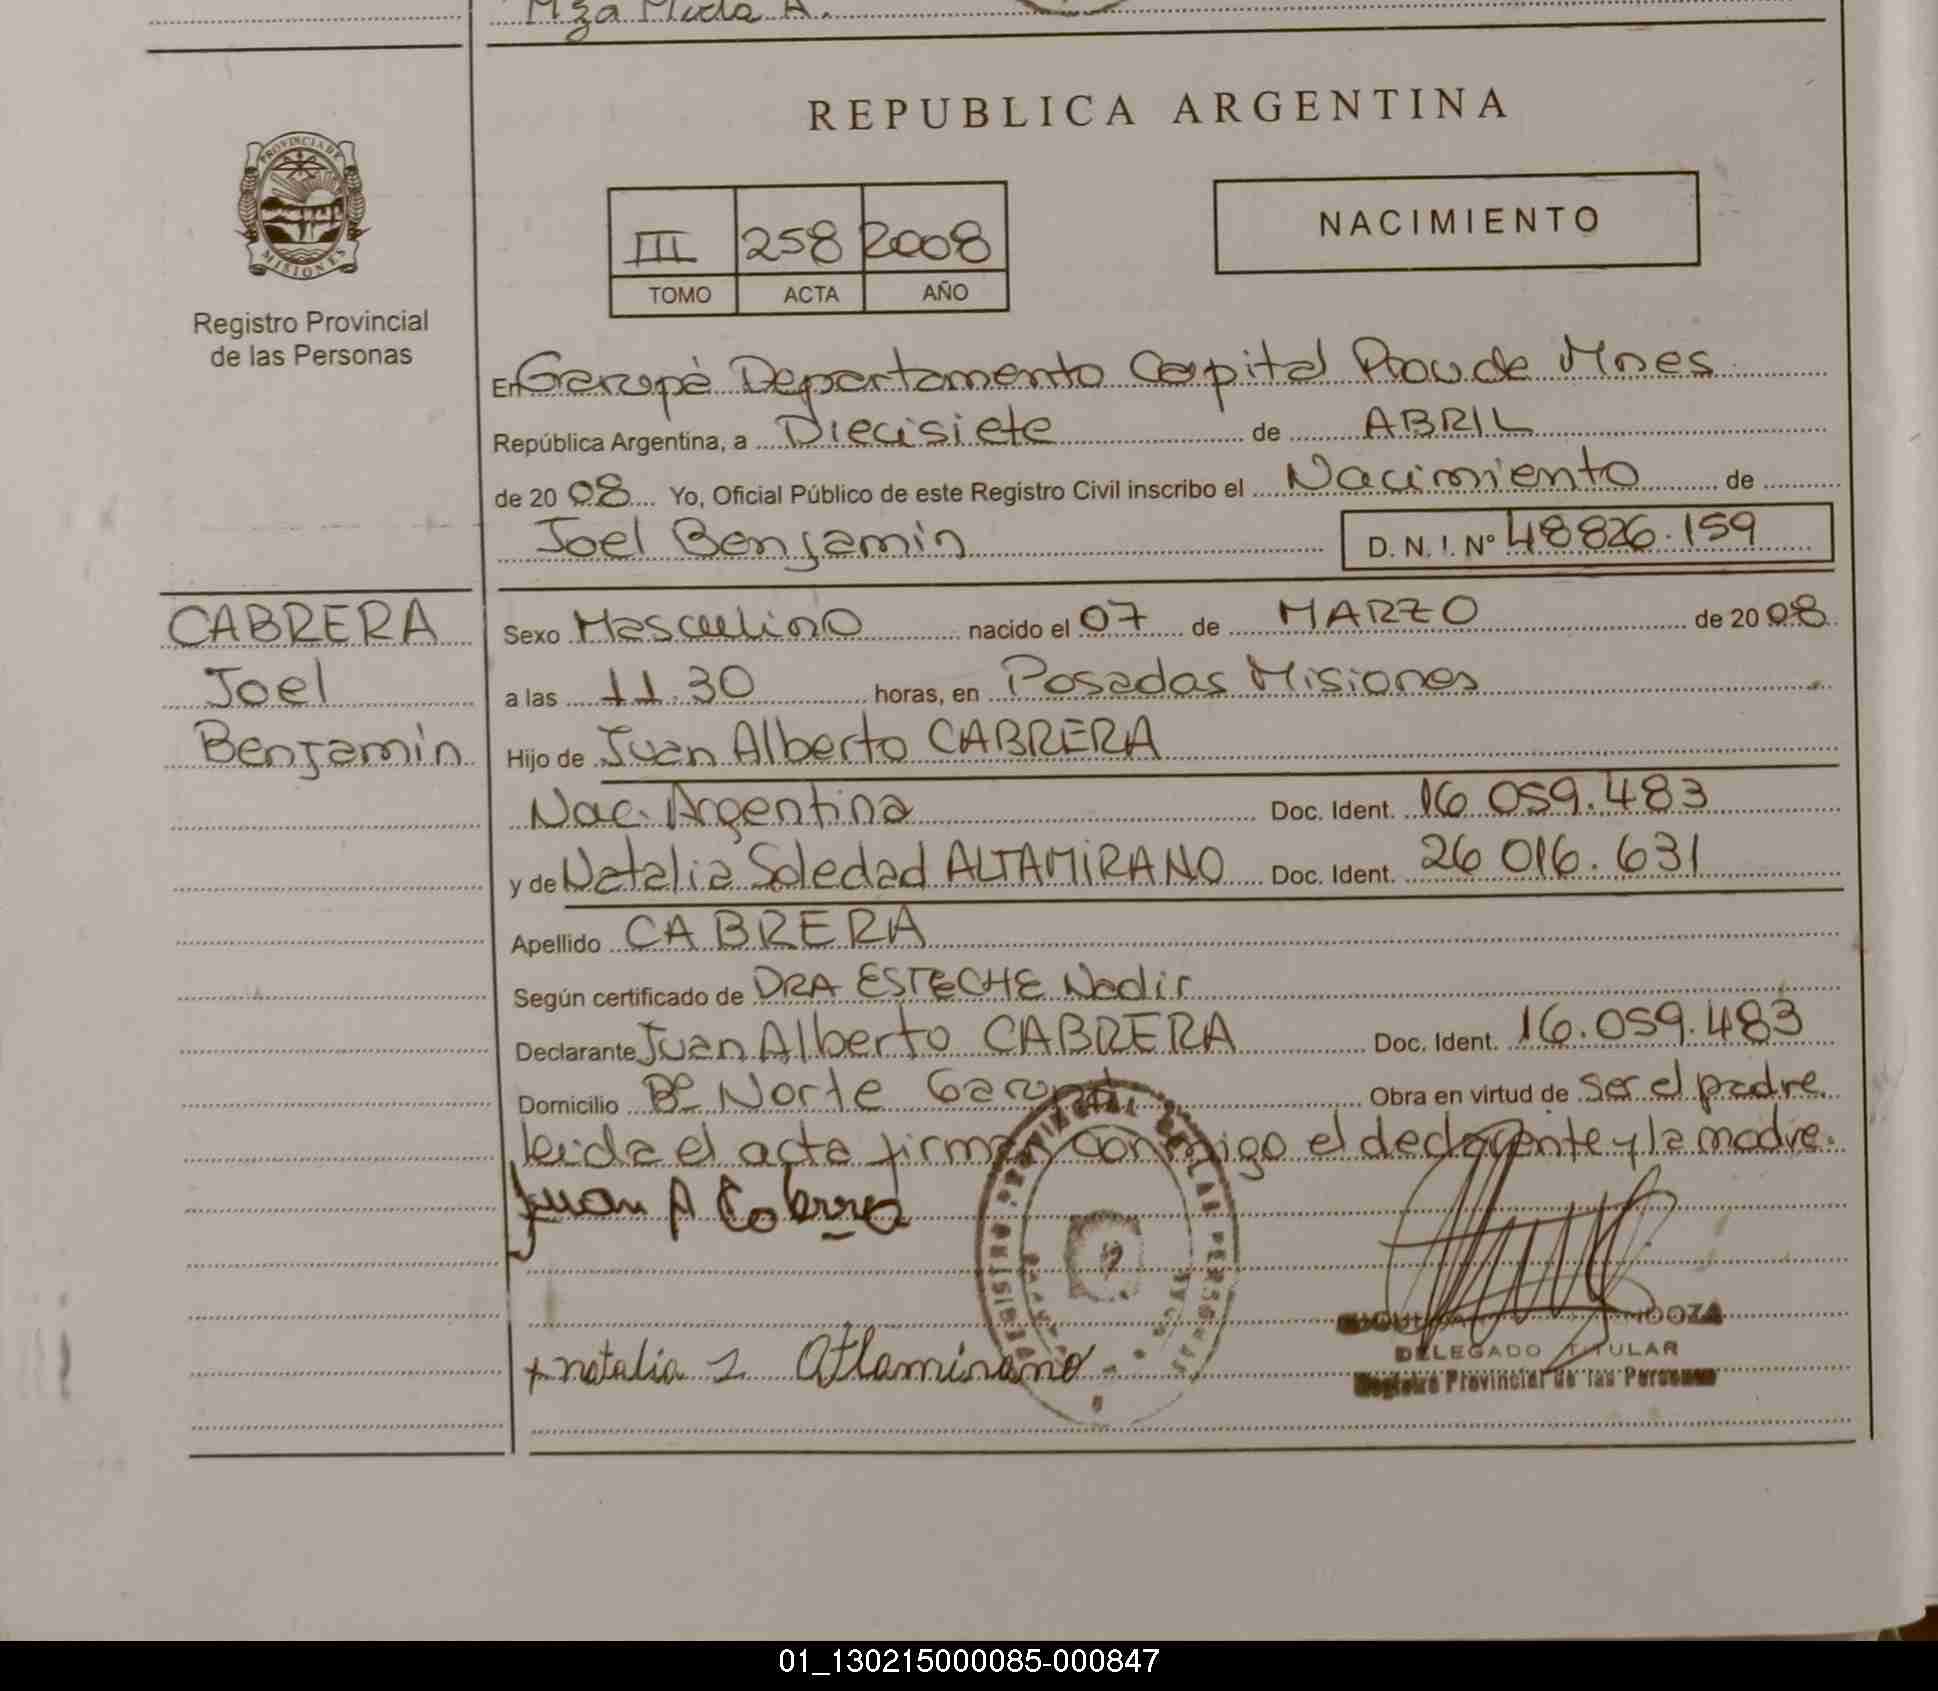 Mza
REPUBLICA ARGENTINA
PROVINCIA DE MISIONES
Registro Provincial
de las Personas
III 258 2008
TOMO ACTA AÑO
NACIMIENTO
En Garupá Departamento Capital Prov. de Mnes
República Argentina, a Diecisiete de ABRIL
de 2008 Yo, Oficial Público de este Registro Civil inscribo el Nacimiento de
Joel Benjamin D.N.I. Nº 48826.159
CABRERA
Joel
Benjamin
Sexo Masculino nacido el 07 de MARZO de 2008
a las 11.30 horas, en Posadas Misiones
Hijo de Juan Alberto CABRERA
Nac. Argentina Doc. Ident. 16 059.483
y de Natalia Soledad ALTAMIRANO Doc. Ident. 26 016.631
Apellido CABRERA
Según certificado de DRA ESTECHE Nadir
Declarante Juan Alberto CABRERA Doc. Ident. 16.059.483
Domicilio Bº Norte Garupá Obra en virtud de ser el padre
leida el acta firman conmigo el declarante y la madre.
Juan A Cabrera
+ natalia s Atlamirano
DELEGADO TITULAR
Registro Provincial de las Personas
01_130215000085-000847